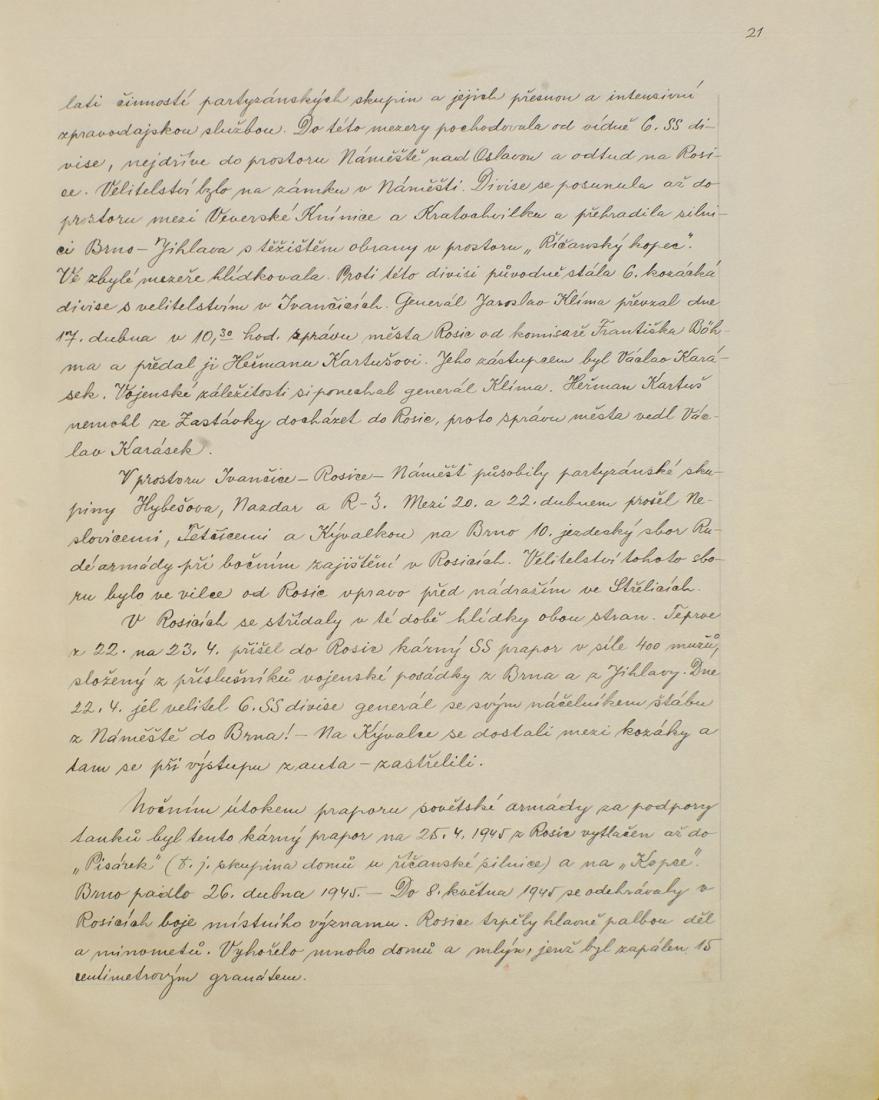 21
lati činností partyzánských skupin a jejich přesnou a intensivní
zpravodajskou službou. Do této mezery pochodovala od vídně 6. SS di-
vise, nejdříve do prostoru Náměště nad Oslavou a odtud na Rosi-
ce. Velitelství bylo na zámku v Náměšti. Divise se posunula až do
prostoru mezi Veverské Knínice a Kratochvilku a přehradila silni-
ci Brno - Jihlava s těžištěm obrany v prostoru „Říčanský kopec".
Ve zbylé mezeře hlídkovala. Proti této divisi původně stála 6. kozácká
divise s velitelstvím v Ivančicích. Generál Jaroslav Klíma převzal dne
17. dubna v 10,30 hod. správu města Rosic od komisaře Františka Böh-
ma a předal ji Heřmanu Kartušovi. Jeho zástupcem byl Václav Kará-
sek. Vojenské záležitosti si ponechal generál Klíma. Heřman Kartuš
nemohl ze Zastávky docházet do Rosic, proto správu města vedl Vác-
lav Karásek.
V prostoru Ivančice - Rosice - Náměšť působily partyzánské sku-
piny Hybešova, Nazdar a R-3. Mezi 20. a 22. dubnem prošel Ne-
slovicemi, Tetčicemi a Kývalkou na Brno 10. jezdecký sbor Ru-
dé armády při bočním zajištění v Rosicích. Velitelství tohoto sbo-
ru bylo ve vilce od Rosic vpravo před nádražím ve Střelicích.
V Rosicích se střídaly v té době hlídky obou stran. Teprve
z 22. na 23. 4. přišel do Rosic kárný SS prapor v síle 400 mužů,
složený z příslušníků vojenské posádky z Brna a z Jihlavy. Dne
22. 4. jel velitel 6. SS divise generál se svým náčelníkem štábu
z Náměště do Brna! - Na Kývalce se dostali mezi kozáky a
tam se při výstupu z auta - zastřelili.
Nočním útokem praporu sovětské armády za podpory
tanků byl tento kárný prapor na 25. 4. 1945 z Rosic vytlačen až do
„Pisárek" (t. j. skupina domů u říčanské silnice) a na „Kopce".
Brno padlo 26. dubna 1945. - Do 8. května 1945 se odehrávaly v
Rosicích boje místního významu. Rosice trpěly hlavně palbou děl
a minometů. Vyhořelo mnoho domů a mlýn, jenž byl zapálen 15
centimetrovým granátem.